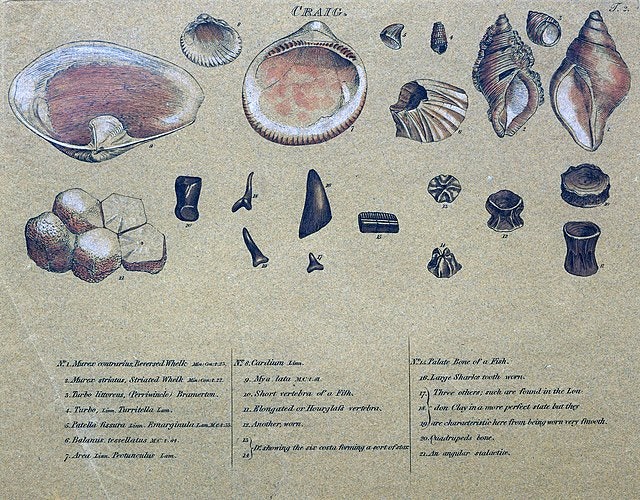 CRAIG.
T. 2.
No. 1. Murex contrarius, Reversed Whelk Min: Con: t. 23.
2. Murex striatus, Striated Whelk Min: Con: t. 22.
3. Turbo littoreus, (Perriwincle) Bramerton.
4. Turbo, Linn. Turritella Lam.
5. Patella fissura Linn. Emarginula Lam. M.C. t. 33
6. Balanus tessellatus M.C. t. 84.
7. Arca Linn. Pectunculus Lam.
No. 8. Cardium Linn.
9. Mya lata M.C. t. 81.
10. Short vertebra of a Fish.
11. Elongated or Hourglass vertebra.
12. Another, worn.
13
14 } Do. showing the six costa forming a sort of star
No. 15. Palate Bone of a Fish.
16. Large Sharks tooth worn.
17. Three others; such are found in the Lon-
18 don Clay in a more perfect state but they
19 are characteristic here from being worn very smooth.
20. Quadrupeds bone.
21. An angular stalactite.